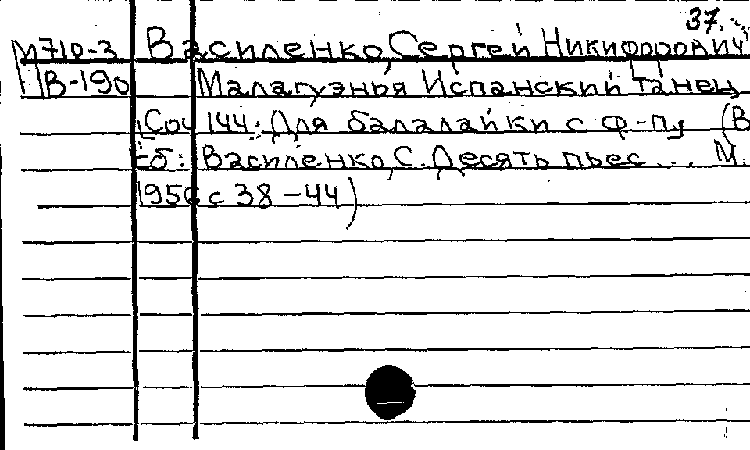 37.
М710-3 Василенко, Сергей Никифорович
В-190 Малагуэнья Испанский танец
Соч 144. Для балалайки с ф-пу (В
сб: Василенко, С. Десять пьес... М.
1956 с 38-44)